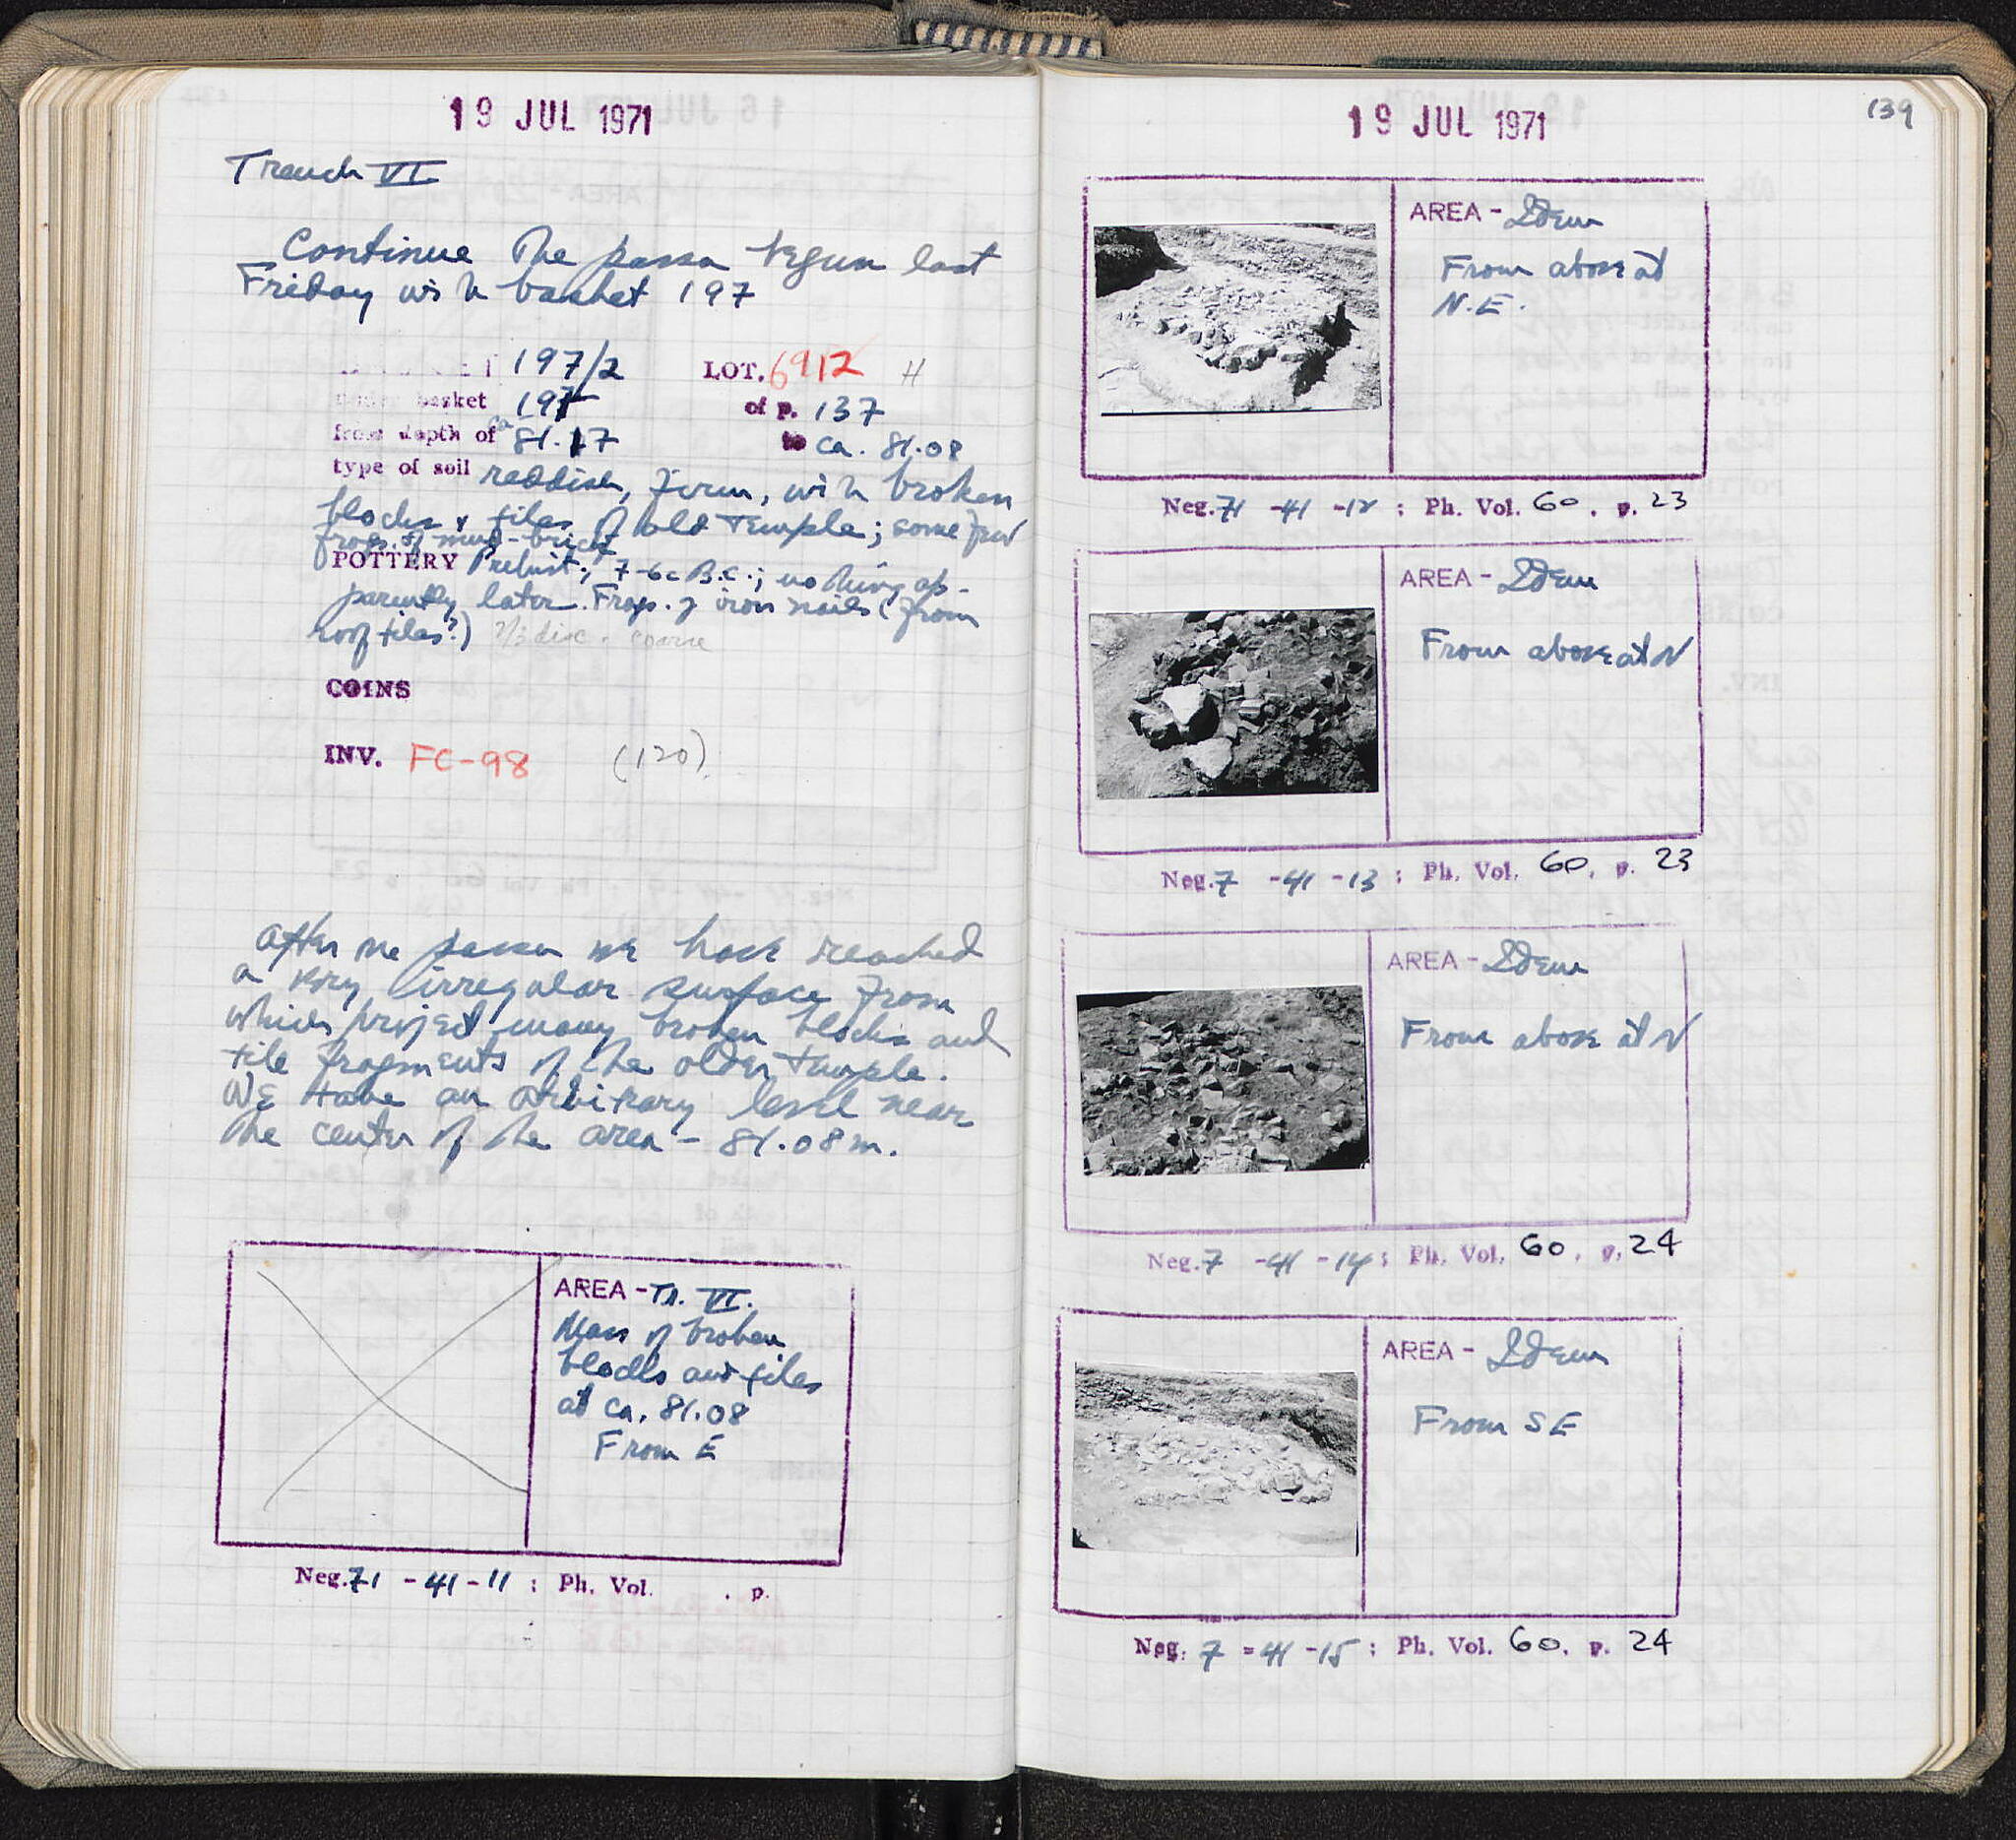 19 JUL 1971
Trench VI
Continue the passa begun last
Friday with basket 197
197/2 LOT. 6912 H
under basket 197 of p. 137
from depth of ca 81.17 to ca. 81.08
type of soil reddish, firm, with broken
blocks & tiles of old Temple; some few
frags. of mud-brick
POTTERY Prehist.; 7-6c B.C.; nothing ap-
parently later. Frags. of iron nails (from
roof tiles?) 2/3 disc. coarse
COINS
INV. FC-98 (120)
After the passa we have reached
a very irregular surface from
which project many broken blocks and
tile fragments of the older Temple.
We have an arbitrary level near
the center of the area - 81.08 m.
AREA - Tr. VI.
Mass of broken
blocks and tiles
at ca. 81.08
From E
Neg. 71 - 41 - 11 ; Ph. Vol. . p.
19 JUL 1971
139
AREA - Idem
From above at
N.E.
Neg. 71 - 41 - 12 ; Ph. Vol. 60 . p. 23
AREA - Idem
From above at N
Neg. 7 - 41 - 13 ; Ph. Vol. 60 . p. 23
AREA - Idem
From above at N
Neg. 7 - 41 - 14 ; Ph. Vol. 60 . p. 24
AREA - Idem
From SE
Neg. 7 - 41 - 15 ; Ph. Vol. 60 . p. 24